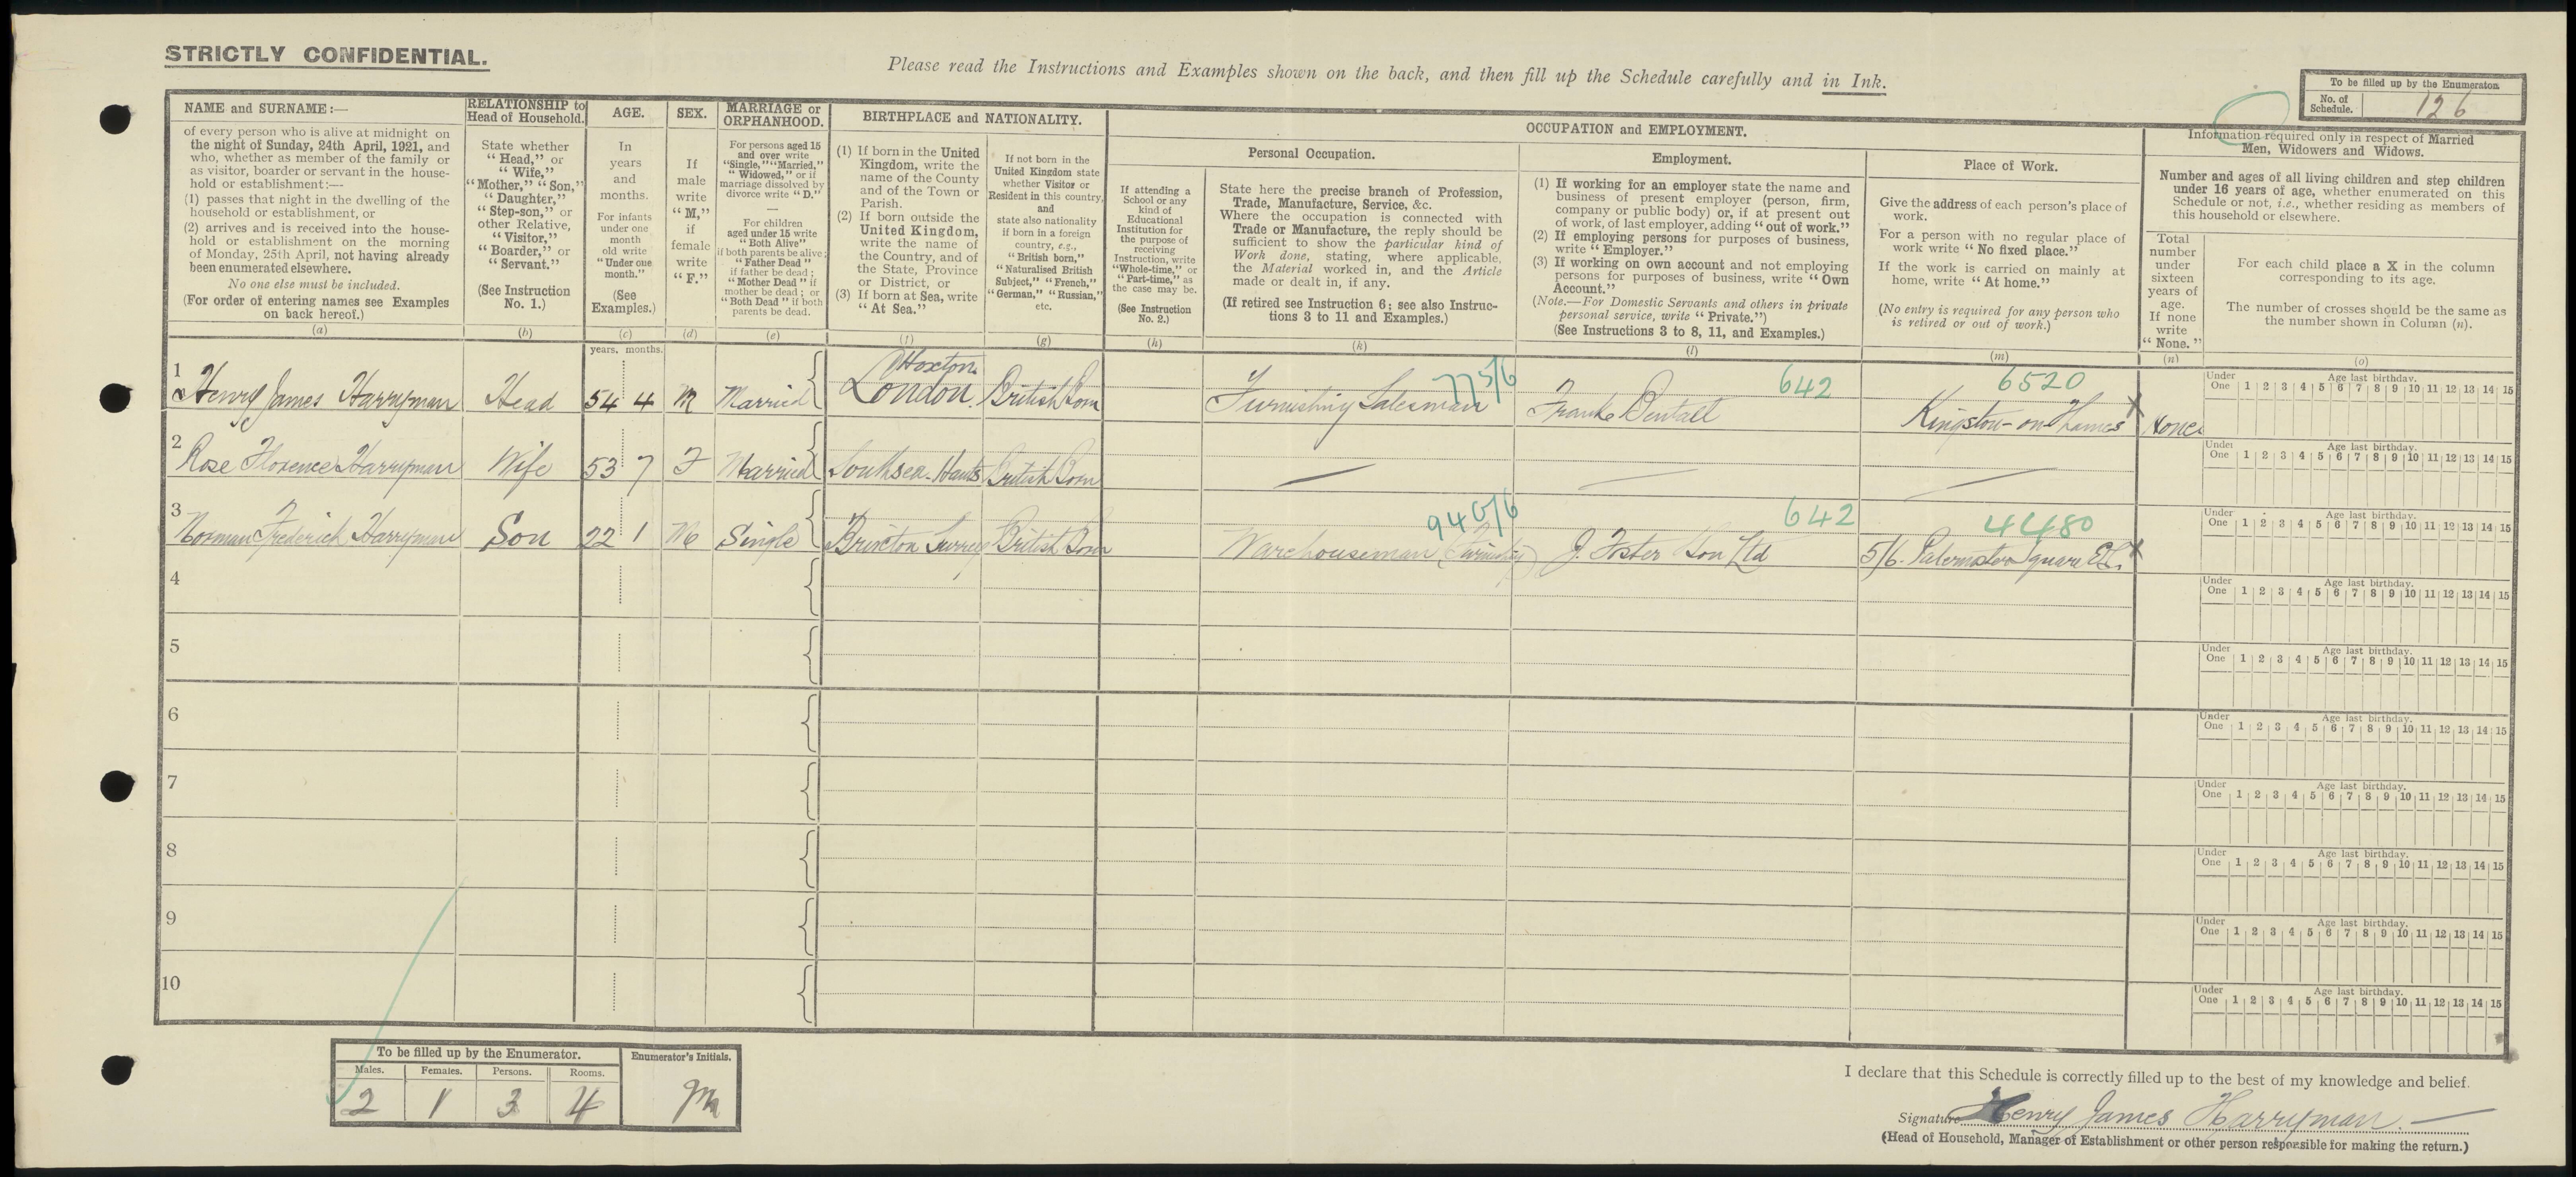 STRICTLY CONFIDENTIAL.
Please read the Instructions and Examples shown on the back, and then fill up the Schedule carefully and in Ink.
To be filled up by the Enumerator.
No. of Schedule. 126
NAME and SURNAME:—
of every person who is alive at midnight on
the night of Sunday, 24th April, 1921, and
who, whether as member of the family or
as visitor, boarder or servant in the house-
hold or establishment:—
(1) passes that night in the dwelling of the
household or establishment, or
(2) arrives and is received into the house-
hold or establishment on the morning
of Monday, 25th April, not having already
been enumerated elsewhere.
No one else must be included.
(For order of entering names see Examples
on back hereof.)
(a)
RELATIONSHIP to
Head of Household.
State whether
"Head," or
"Wife,"
"Mother," "Son,"
"Daughter,"
"Step-son," or
other Relative,
"Visitor,"
"Boarder," or
"Servant."
(See Instruction
No. 1.)
(b)
AGE.
In
years
and
months.
For infants
under one
month
old write
"Under one
month."
(See
Examples.)
(c)
SEX.
If
male
write
"M,"
if
female
write
"F."
(d)
MARRIAGE or
ORPHANHOOD.
For persons aged 15
and over write
"Single," "Married,"
"Widowed," or if
marriage dissolved by
divorce write "D."
—
For children
aged under 15 write
"Both Alive"
if both parents be alive;
"Father Dead"
if father be dead;
"Mother Dead" if
mother be dead; or
"Both Dead" if both
parents be dead.
(e)
BIRTHPLACE and NATIONALITY.
(1) If born in the United
Kingdom, write the
name of the County
and of the Town or
Parish.
(2) If born outside the
United Kingdom,
write the name of
the Country, and of
the State, Province
or District, or
(3) If born at Sea, write
"At Sea."
(f)
If not born in the
United Kingdom state
whether Visitor or
Resident in this country,
and
state also nationality
if born in a foreign
country, e.g.,
"British born,"
"Naturalised British
Subject," "French,"
"German," "Russian,"
etc.
(g)
OCCUPATION and EMPLOYMENT.
If attending a
School or any
kind of
Educational
Institution for
the purpose of
receiving
Instruction, write
"Whole-time," or
"Part-time," as
the case may be.
(See Instruction
No. 2.)
(h)
Personal Occupation.
State here the precise branch of Profession,
Trade, Manufacture, Service, &c.
Where the occupation is connected with
Trade or Manufacture, the reply should be
sufficient to show the particular kind of
Work done, stating, where applicable,
the Material worked in, and the Article
made or dealt in, if any.
(If retired see Instruction 6; see also Instruc-
tions 3 to 11 and Examples.)
(k)
Employment.
(1) If working for an employer state the name and
business of present employer (person, firm,
company or public body) or, if at present out
of work, of last employer, adding "out of work."
(2) If employing persons for purposes of business,
write "Employer."
(3) If working on own account and not employing
persons for purposes of business, write "Own
Account."
(Note.—For Domestic Servants and others in private
personal service, write "Private.")
(See Instructions 3 to 8, 11, and Examples.)
(l)
Place of Work.
Give the address of each person's place of
work.
For a person with no regular place of
work write "No fixed place."
If the work is carried on mainly at
home, write "At home."
(No entry is required for any person who
is retired or out of work.)
(m)
Information required only in respect of Married
Men, Widowers and Widows.
Number and ages of all living children and step children
under 16 years of age, whether enumerated on this
Schedule or not, i.e., whether residing as members of
this household or elsewhere.
Total
number
under
sixteen
years of
age.
If none
write
"None."
(n)
For each child place a X in the column
corresponding to its age.
The number of crosses should be the same as
the number shown in Column (n).
(o)
years. months.
1 Henry James Harryman Head 54 4 M Married Hoxton London British Born Furnishing Salesman 775/6 Frank Bentall 642 Kingston-on-Thames 6520 X None
Under One Age last birthday. 1 2 3 4 5 6 7 8 9 10 11 12 13 14 15
2 Rose Florence Harryman Wife 53 7 F Married Southsea-Hants British Born — — —
Under One Age last birthday. 1 2 3 4 5 6 7 8 9 10 11 12 13 14 15
3 Norman Frederick Harryman Son 22 1 M Single Brixton Surrey British Born Warehouseman 940/6 J. Foster Son Ltd 642 5/6. Square E.C. 4480 X
Under One Age last birthday. 1 2 3 4 5 6 7 8 9 10 11 12 13 14 15
4
Under One Age last birthday. 1 2 3 4 5 6 7 8 9 10 11 12 13 14 15
5
Under One Age last birthday. 1 2 3 4 5 6 7 8 9 10 11 12 13 14 15
6
Under One Age last birthday. 1 2 3 4 5 6 7 8 9 10 11 12 13 14 15
7
Under One Age last birthday. 1 2 3 4 5 6 7 8 9 10 11 12 13 14 15
8
Under One Age last birthday. 1 2 3 4 5 6 7 8 9 10 11 12 13 14 15
9
Under One Age last birthday. 1 2 3 4 5 6 7 8 9 10 11 12 13 14 15
10
Under One Age last birthday. 1 2 3 4 5 6 7 8 9 10 11 12 13 14 15
To be filled up by the Enumerator.
Males. Females. Persons. Rooms.
2 1 3 4
Enumerator's Initials.
I declare that this Schedule is correctly filled up to the best of my knowledge and belief.
Signature Henry James Harryman.
(Head of Household, Manager of Establishment or other person responsible for making the return.)